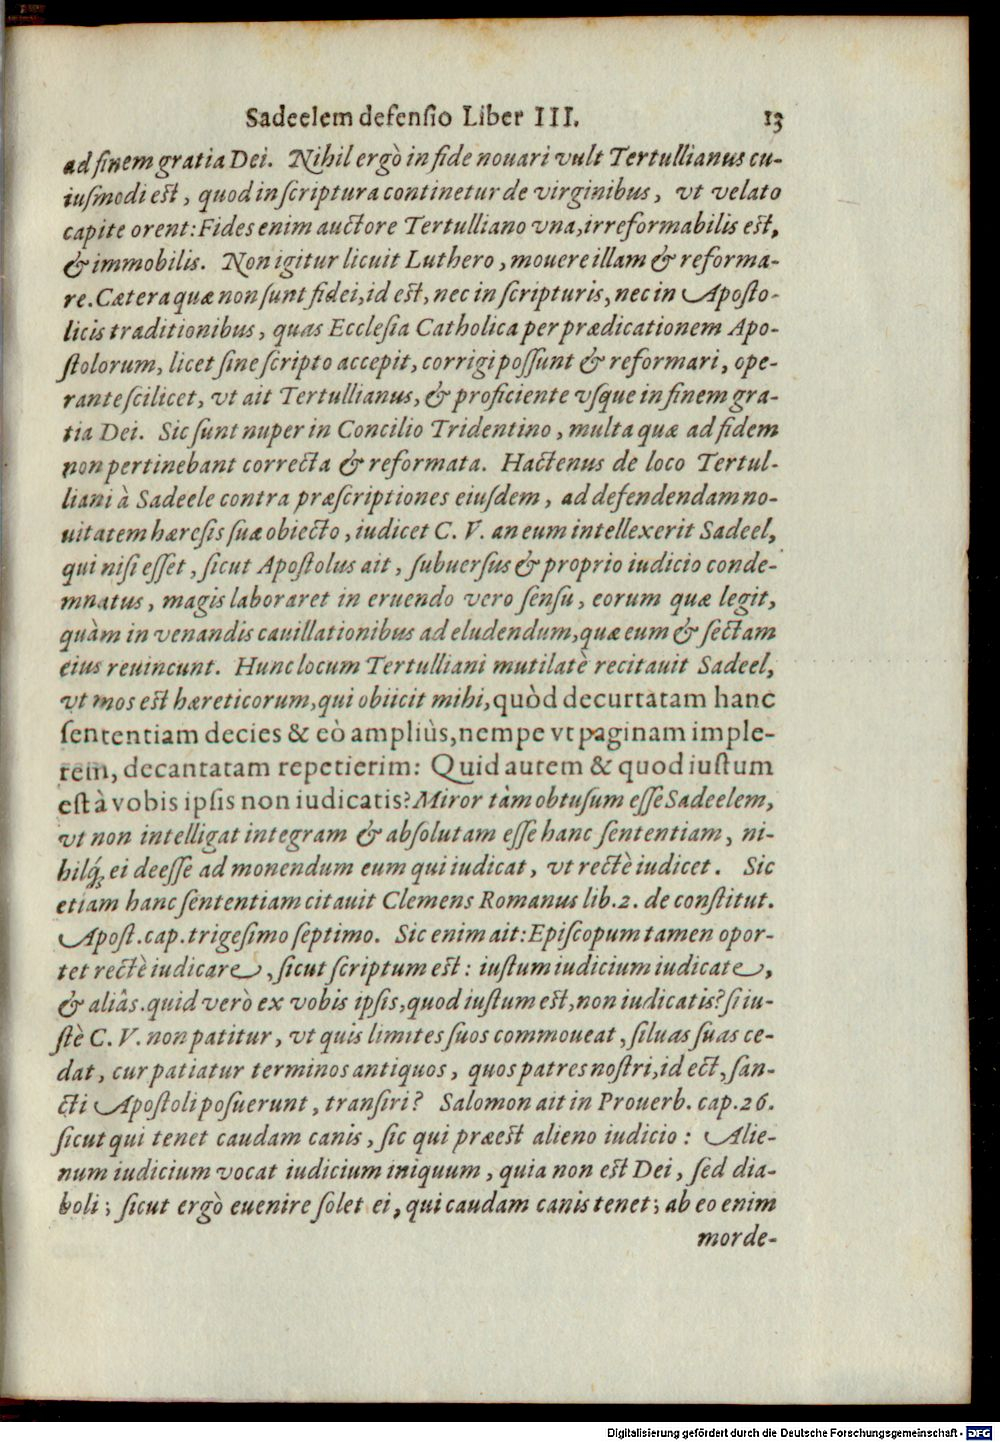 Sadeelem defensio Liber III. 13
ad finem gratia Dei. Nihil ergò in fide nouari vult Tertullianus cu-
iusmodi est, quod in scriptura continetur de virginibus, vt velato
capite orent: Fides enim auctore Tertulliano vna, irreformabilis est,
& immobilis. Non igitur licuit Luthero, mouere illam & reforma-
re. Cætera quæ non sunt fidei, id est, nec in scripturis, nec in Aposto-
licis traditionibus, quas Ecclesia Catholica per prædicationem Apo-
stolorum, licet sine scripto accepit, corrigi possunt & reformari, ope-
rante scilicet, vt ait Tertullianus, & proficiente vsque in finem gra-
tia Dei. Sic sunt nuper in Concilio Tridentino, multa quæ ad fidem
non pertinebant correcta & reformata. Hactenus de loco Tertul-
liani à Sadeele contra præscriptiones eiusdem, ad defendendam no-
uitatem hæresis suæ obiecto, iudicet C. V. an eum intellexerit Sadeel,
qui nisi esset, sicut Apostolus ait, subuersus & proprio iudicio conde-
mnatus, magis laboraret in eruendo vero sensu, eorum quæ legit,
quàm in venandis cauillationibus ad eludendum, quæ eum & sectam
eius reuincunt. Hunc locum Tertulliani mutilatè recitauit Sadeel,
vt mos est hæreticorum, qui obiicit mihi, quòd decurtatam hanc
sententiam decies & eò ampliùs, nempe vt paginam imple-
rem, decantatam repetierim: Quid autem & quod iustum
est à vobis ipsis non iudicatis? Miror tàm obtusum esse Sadeelem,
vt non intelligat integram & absolutam esse hanc sententiam, ni-
hilq́; ei deesse ad monendum eum qui iudicat, vt rectè iudicet. Sic
etiam hanc sententiam citauit Clemens Romanus lib. 2. de constitut.
Apost. cap. trigesimo septimo. Sic enim ait: Episcopum tamen opor-
tet rectè iudicare, sicut scriptum est: iustum iudicium iudicate,
& aliâs. quid verò ex vobis ipsis, quod iustum est, non iudicatis? si iu-
stè C. V. non patitur, vt quis limites suos commoueat, siluas suas ce-
dat, cur patiatur terminos antiquos, quos patres nostri, id ect, san-
cti Apostoli posuerunt, transiri? Salomon ait in Prouerb. cap. 26.
sicut qui tenet caudam canis, sic qui præest alieno iudicio: Alie-
num iudicium vocat iudicium iniquum, quia non est Dei, sed dia-
boli; sicut ergò euenire solet ei, qui caudam canis tenet; ab eo enim
morde-
Digitalisierung gefördert durch die Deutsche Forschungsgemeinschaft - DFG